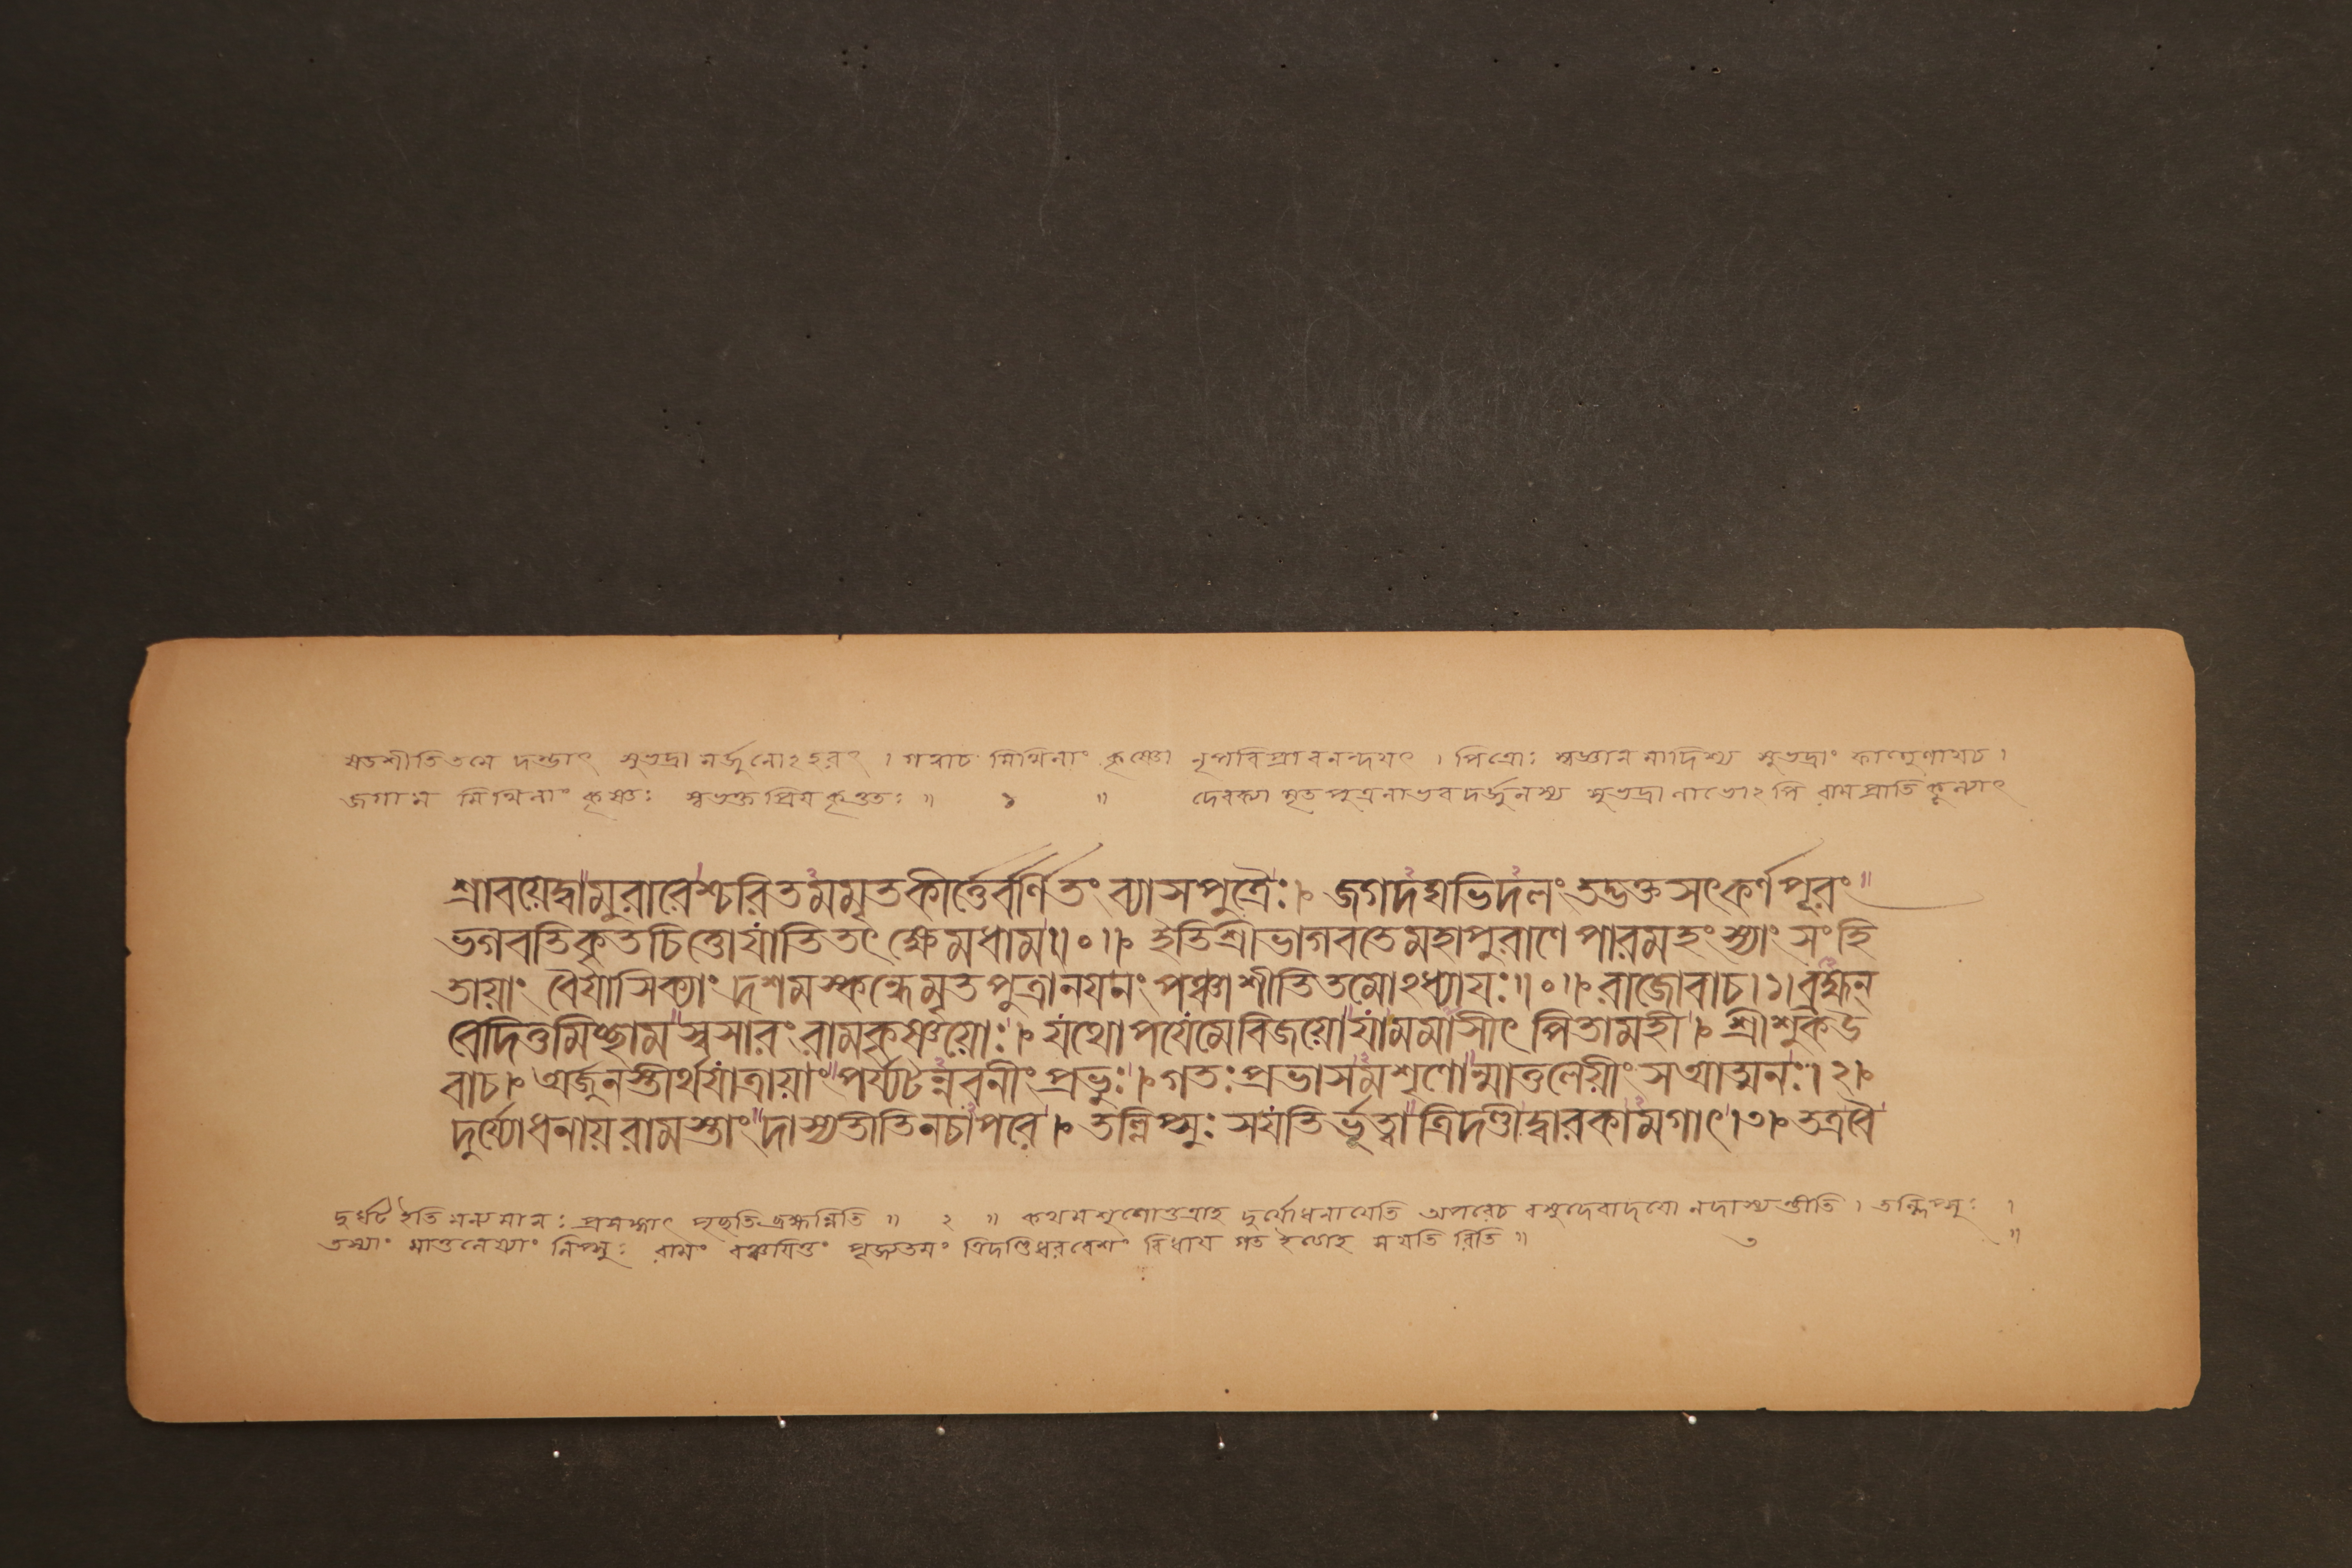 ষডশীতিতমে দম্ভাৎ সুভদ্রা মর্জুনোঽহরৎ । গত্বাচ মিথিলাং কৃষ্ণো নৃপবিপ্রাবনন্দযৎ । পিত্রোঃ সুভদ্রাং ফাল্গুণাযচ ।
জগাম মিথিলাং কৃষ্ণঃ স্বভক্ত প্রিয কৃত্ততঃ ॥ ১ ॥ দেবক্যা মৃত পুত্রলাভব দর্জুনস্য সুভদ্রা লাভোঽপি রামপ্রাতি কূল্যাৎ
শ্রাবয়েদ্বামুরারেশ্চরিতমমৃতকীর্ত্তের্বর্ণিতং ব্যাসপুত্রৈঃ। জগদঘভিদলং তদ্ভক্তসৎকর্ণপূরং
ভগবতিকৃতচিত্তোযাতিতৎ ক্ষেমধাম॥০॥ ইতিশ্রীভাগবতেমহাপুরাণেপারমহংস্যাং সংহি
তায়াং বৈযাসিক্যাং দশমস্কন্ধেমৃতপুত্রানযনং পঞ্চাশীতিতমোঽধ্যাযঃ॥০॥ রাজোবাচ।১।ব্রহ্মন্
বেদিতুমিচ্ছাম স্বসারং রামকৃষ্ণয়োঃ। যথোপযেমেবিজয়োযামমাসীৎ পিতামহী। শ্রীশুকউ
বাচ। অর্জুনস্তীর্থযাত্রায়াং পর্য্যটন্নবনীং প্রভুঃ। গতঃপ্রভাসমশৃণোন্মাতুলেয়ীং সআত্মনঃ।২।
দুর্য্যোধনায়রামস্তাং দাস্যতীতিনচাপরে। তল্লিপ্সুঃ সযতির্ভূত্বাত্রিদণ্ডীদ্বারকামগাৎ।৩। তত্রবৈ
দুর্ঘট ইতি মন্যমানঃ প্রসঙ্গাৎ পৃছতিব্রহ্মন্নিতি ॥ ২ ॥ কথমশৃণোত্তত্রাহ দুর্যোধনাযেতি অপরেচ বসুদেবাদযো নদাস্যন্তীতি । তল্লিপ্সুঃ ।
তস্যাং মাতুলেয্যাং লিপ্সুঃ রামং বঞ্চযিতুং পূজ্যতমং ত্রিদণ্ডিধরবেশং বিধায গত ইত্যাহ সযতি রিতি ॥ ৩ ॥